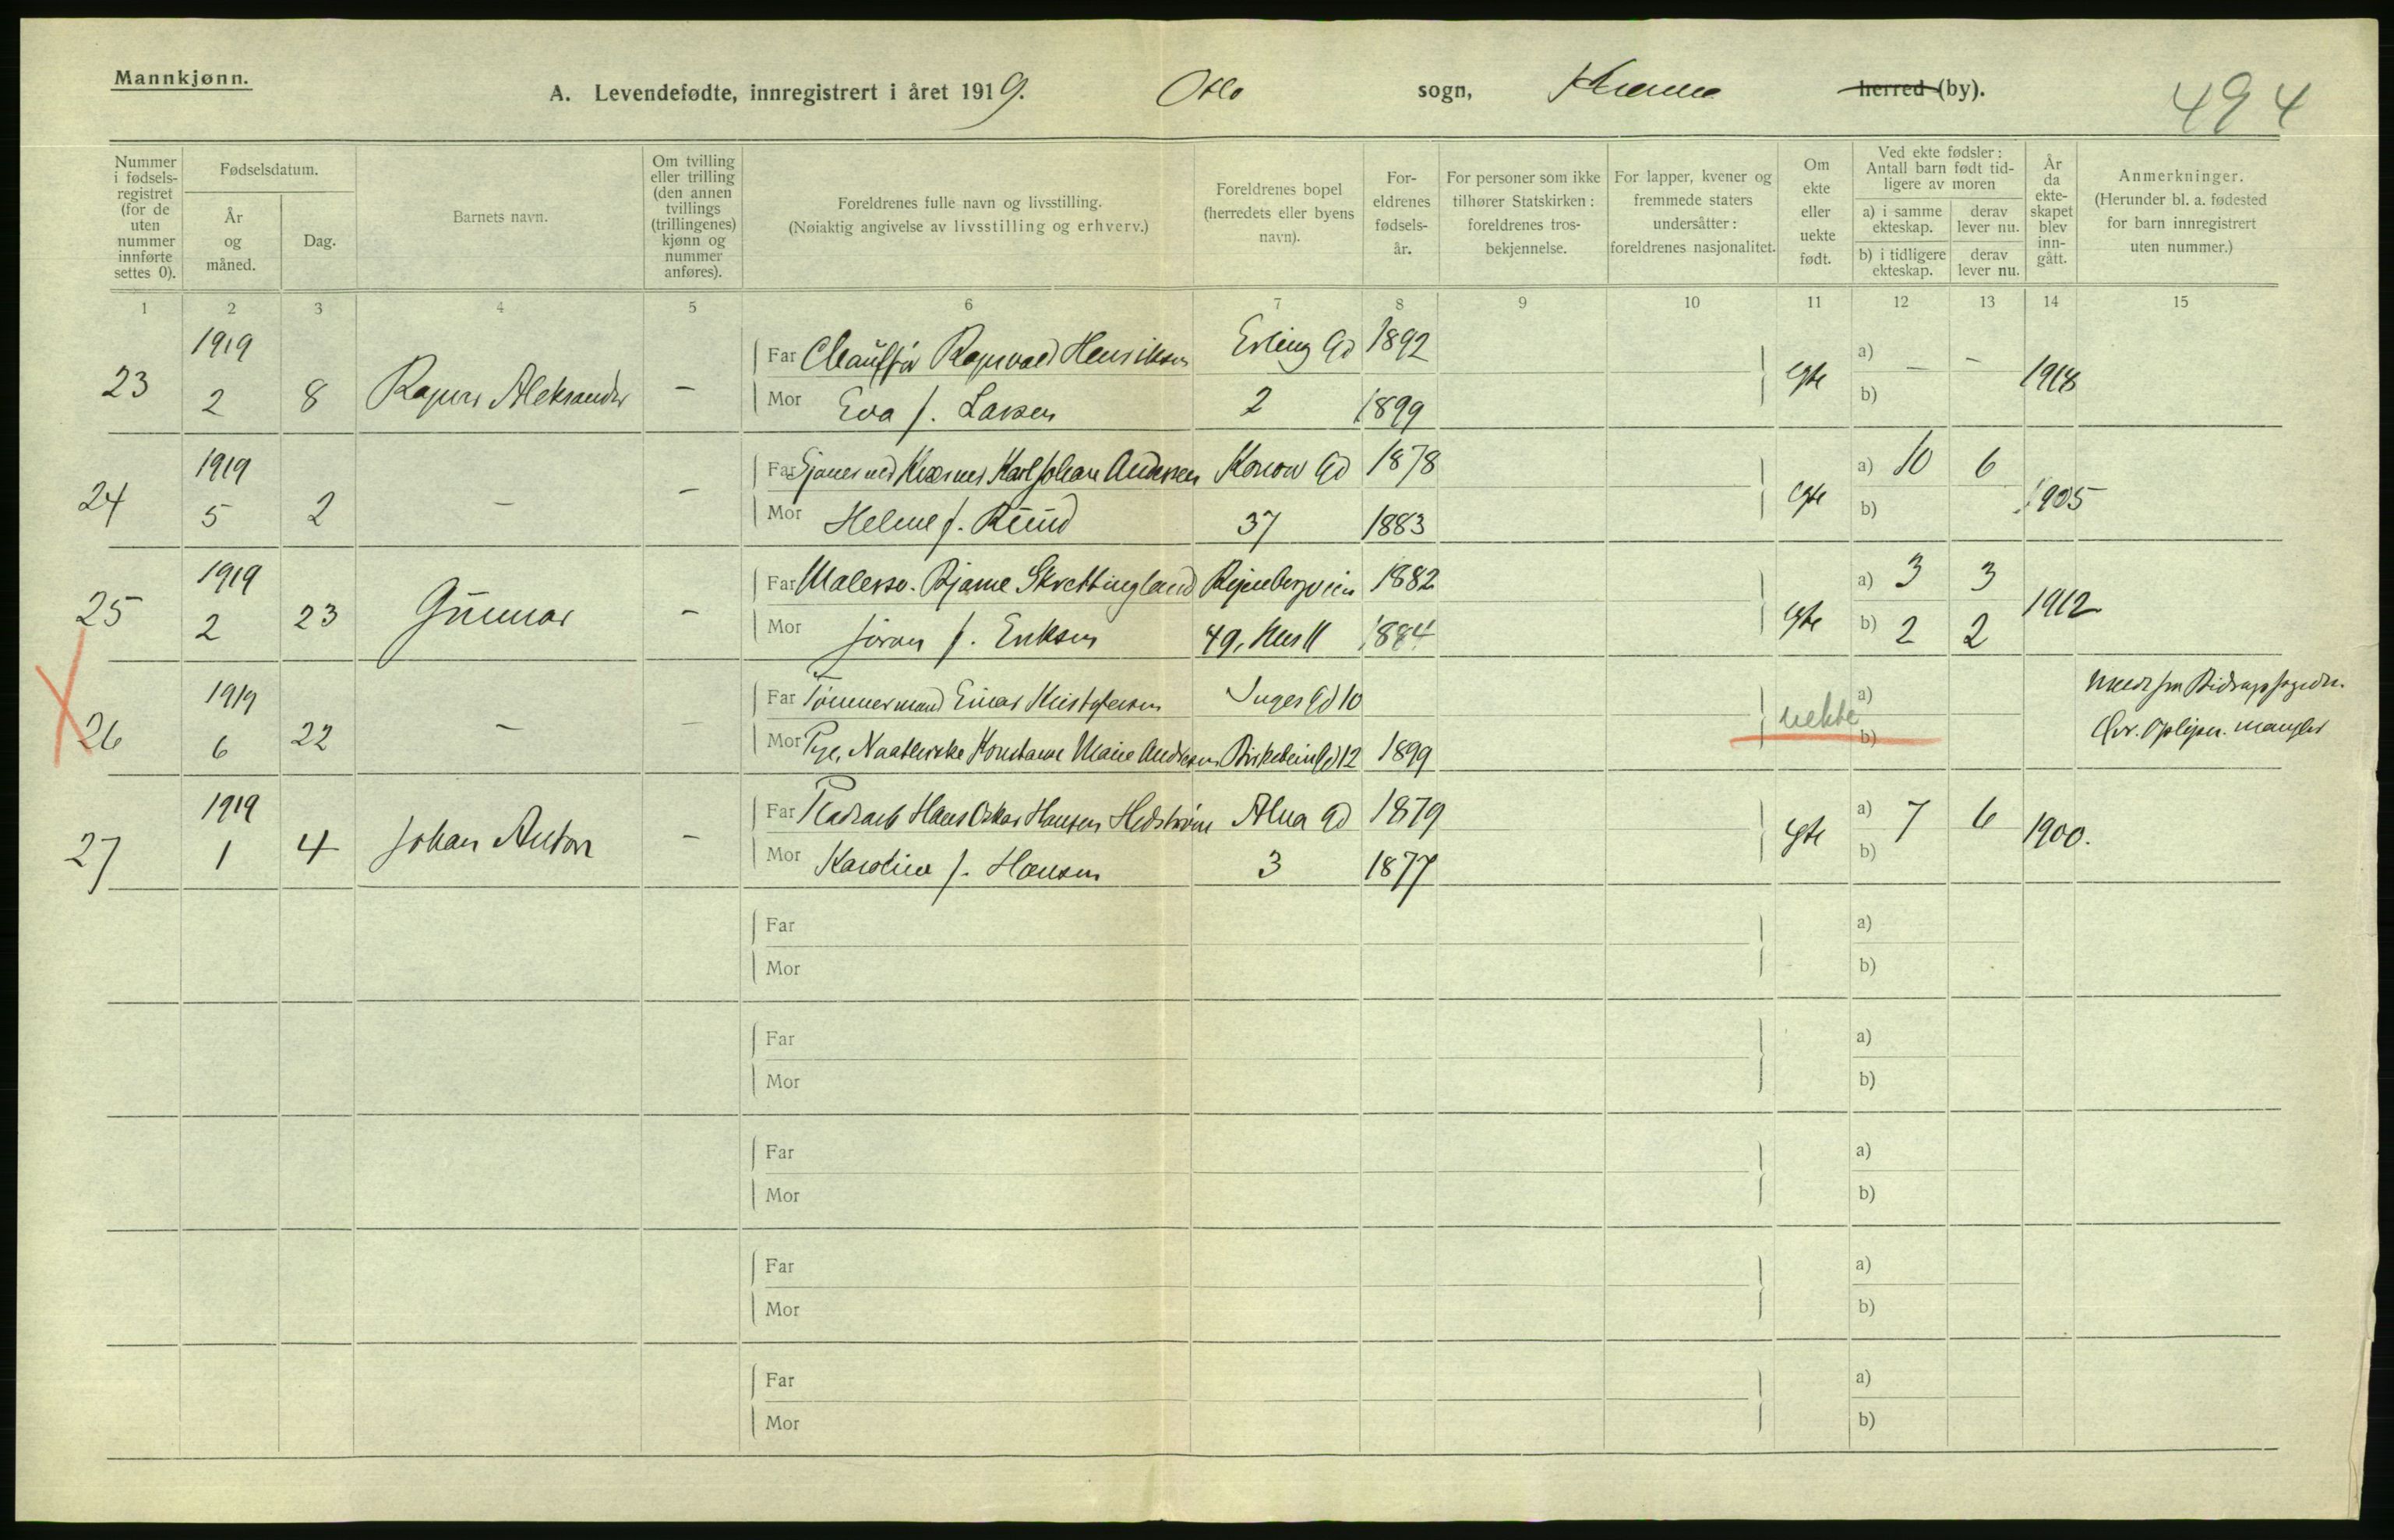 Mannkjønn.
A. Levendefødte, innregistrert i året 1919. Oslo sogn, herred (by).
494
Nummer i fødsels-registret (for de uten nummer innførte settes 0).
Fødselsdatum.
År og måned.
Dag.
Barnets navn.
Om tvilling eller trilling (den annen tvillings (trillingenes) kjønn og nummer anføres).
Foreldrenes fulle navn og livsstilling.
(Nøiaktig angivelse av livsstilling og erhverv.)
Foreldrenes bopel (herredets eller byens navn).
For-eldrenes fødsels-år.
For personer som ikke tilhører Statskirken: foreldrenes tros-bekjennelse.
For lapper, kvener og fremmede staters undersåtter: foreldrenes nasjonalitet.
Om ekte eller uekte født.
Ved ekte fødsler: Antall barn født tid-ligere av moren
a) i samme ekteskap.
derav lever nu.
b) i tidligere ekteskap.
derav lever nu.
År da ekte-skapet blev inn-gått.
Anmerkninger.
(Herunder bl. a. fødested for barn innregistrert uten nummer.)
1 2 3 4 5 6 7 8 9 10 11 12 13 14 15
23 1919 2 8 Ragnar Aleksander –
Far Chauffør Ragnvald Henriksen Erling Gd 1892
Mor Eva f. Larsen 2 1899
egte a) – – b) 1918
24 1919 5 2 – –
Far Karl Johan Andersen Konow Gd 1878
Mor Helene f. Ruud 37 1883
egte a) 10 6 b) 1905
25 1919 2 23 Gunnar –
Far Malersv. Bjarne Skrettingland 1882
Mor f. Eriksen 49, 1884
egte a) 3 3 b) 2 2 1912
26 1919 6 22 – –
Far Tømmermand Einar Kristofersen Inges Gd 10
Mor Konstanse Marie Andresen Birkebein Gd 12 1899
uekte a) b)
mangler
27 1919 1 4 Johan Anton –
Far Hans Oskar Hansen Hedstrøm Alna Gd 1879
Mor Karoline f. Hansen 3 1877
egte a) 7 6 b) 1900.
Far a)
Mor b)
Far a)
Mor b)
Far a)
Mor b)
Far a)
Mor b)
Far a)
Mor b)